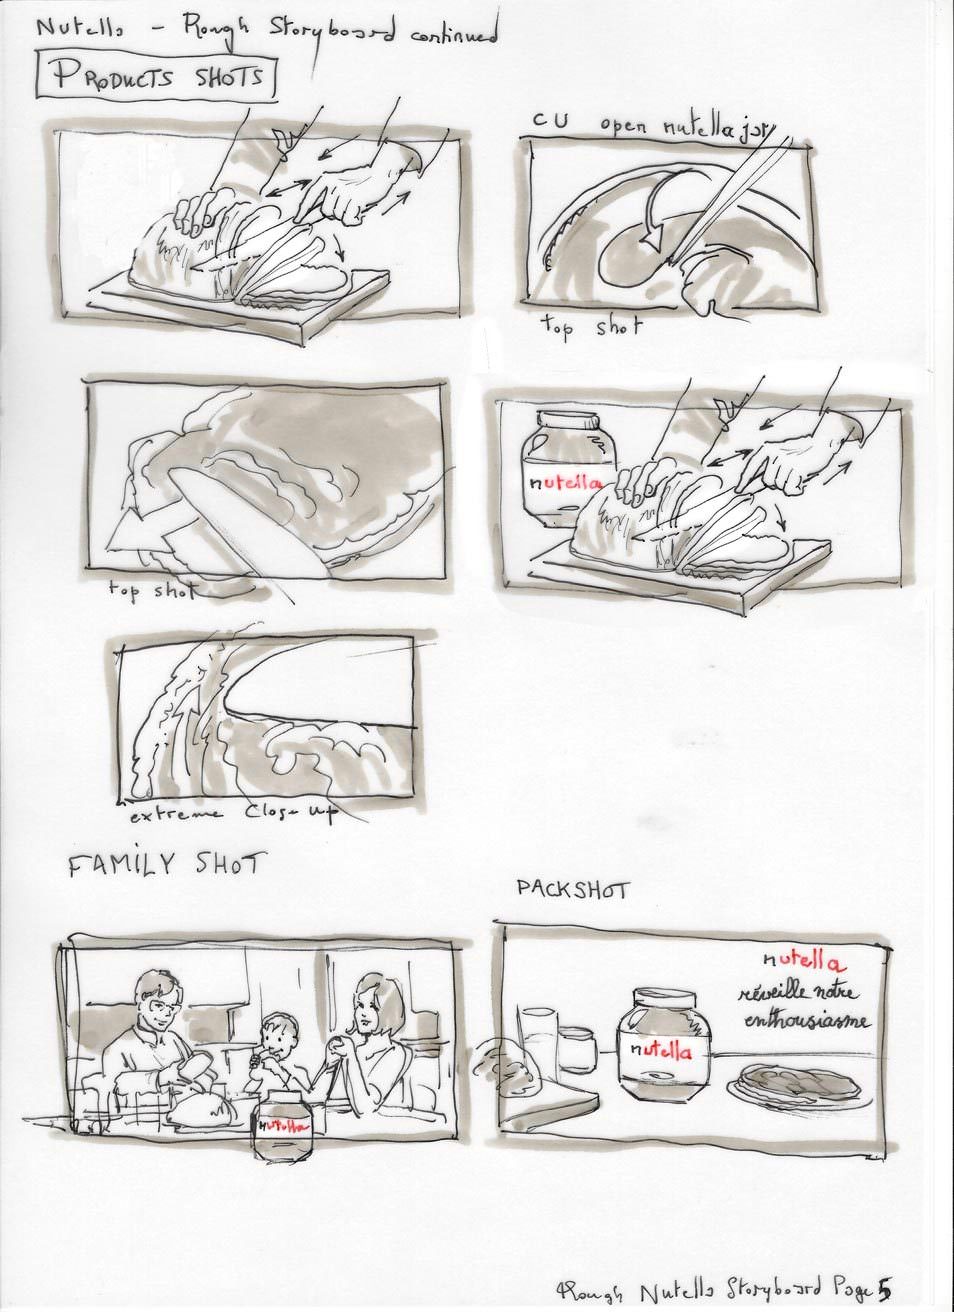 Nutella - Rough Storyboard continued
PRODUCTS SHOTS
CU open nutella jar
top shot
top shot
nutella
extreme Close up
FAMILY SHOT
PACKSHOT
nutella
réveille notre
enthousiasme
nutella
nutella
Rough Nutella Storyboard Page 5